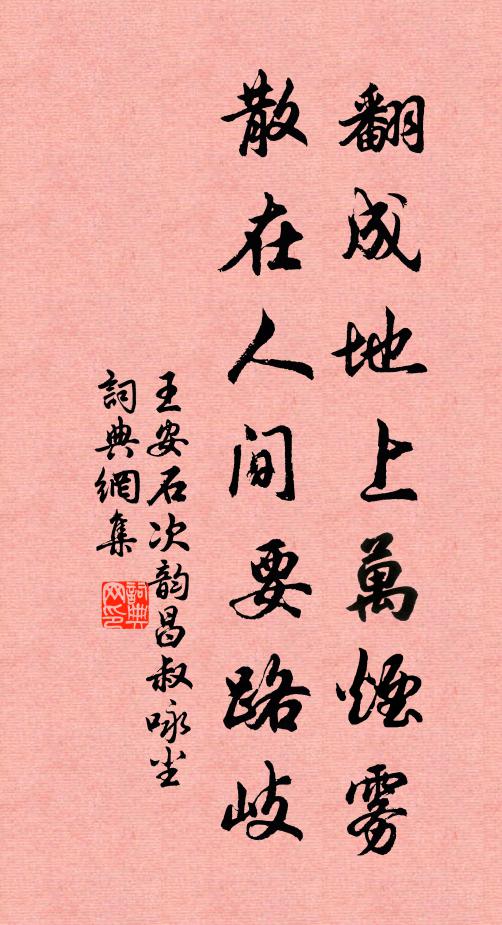 翻成地上萬煙霧
散在人間要路歧
王安石次韵昌叔咏尘
詞典網集
詞典網印